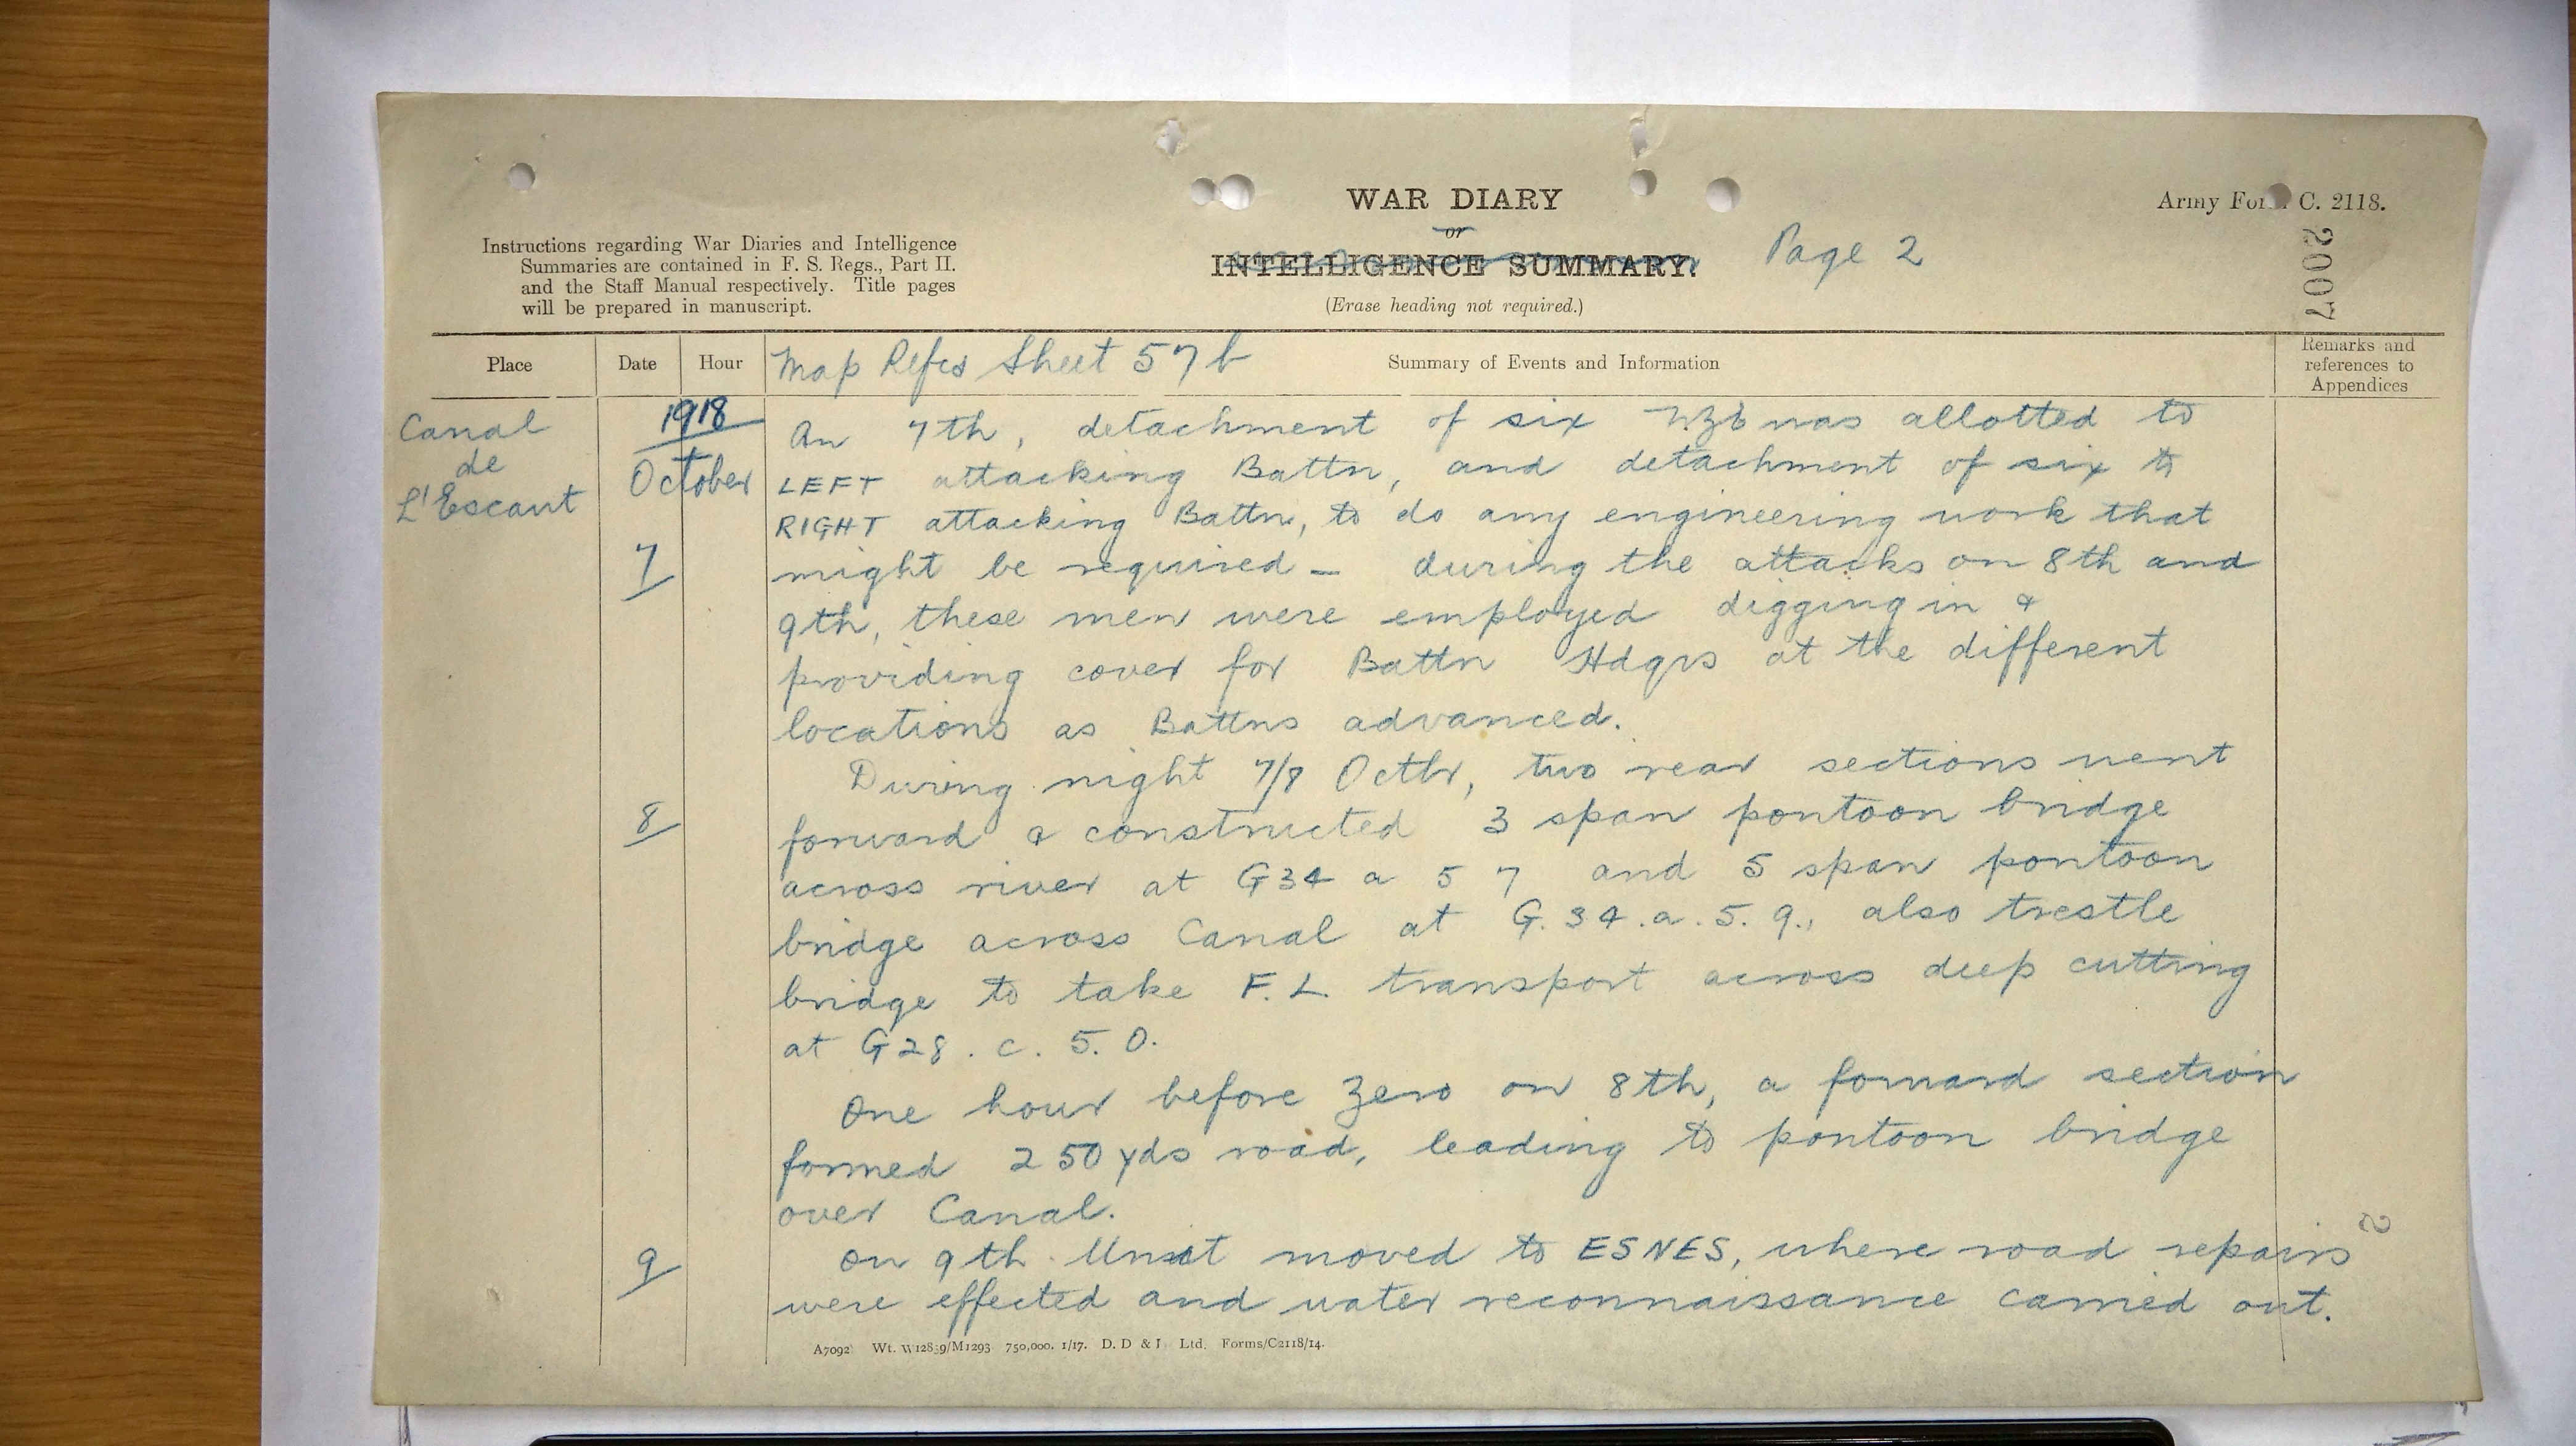 WAR DIARY
or
INTELLIGENCE SUMMARY.
(Erase heading not required.)
Page 2
Army Form C. 2118.
2007
Instructions regarding War Diaries and Intelligence
Summaries are contained in F. S. Regs., Part II.
and the Staff Manual respectively. Title pages
will be prepared in manuscript.
Place
Date
Hour
Map Refces Sheet 57b
Summary of Events and Information
Remarks and
references to
Appendices
Canal
de
L'Escaut
1918
October
7
On 7th, detachment of six was allotted to
LEFT attacking Battn, and detachment of six to
RIGHT attacking Battn, to do any engineering work that
might be required – during the attacks on 8th and
9th, these men were employed digging in &
providing cover for Battn Hdqrs at the different
locations as Battns advanced.
During night 7/8 Octbr, two rear sections went
8
forward & constructed 3 span pontoon bridge
across river at G34 a 5 7 and 5 span pontoon
bridge across Canal at G. 34. a. 5. 9., also trestle
bridge to take F. L. transport across deep cutting
at G28. c. 5. 0.
One hour before Zero on 8th, a forward section
formed 250 yds road, leading to pontoon bridge
over Canal.
9
On 9th Unit moved to ESNES, where road repairs
were effected and water reconnaissance carried out.
2
A7092 Wt. W12859/M1293 750,000. 1/17. D. D & L Ltd. Forms/C2118/14.